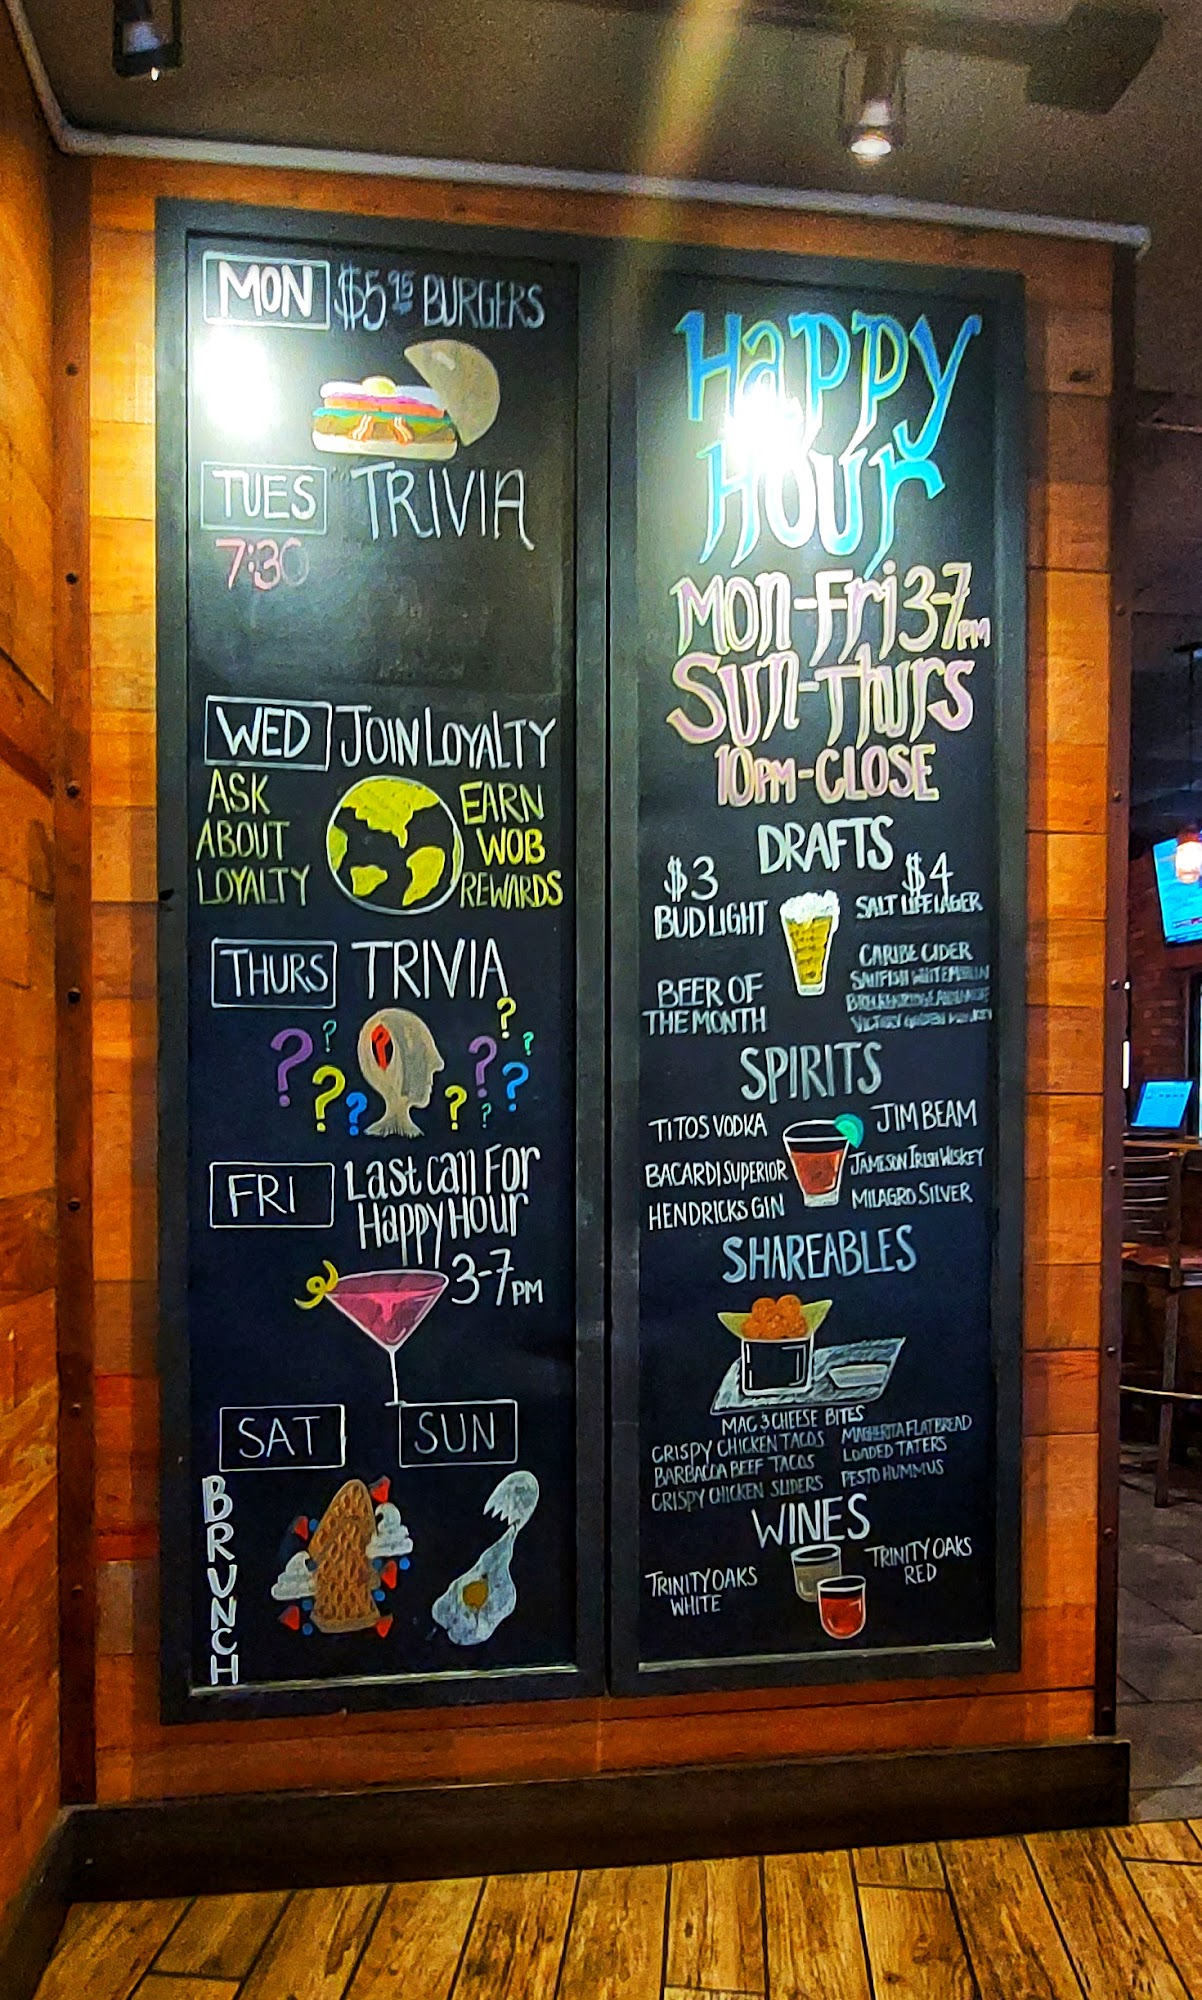 MON $5.95 BURGERS
TUES TRIVIA
7:30
WED JOIN LOYALTY
ASK
ABOUT
LOYALTY
EARN
WOB
REWARDS
THURS TRIVIA
? ? ? ? ? ? ? ? ? ? ?
FRI Last Call For
Happy Hour
3-7PM
SAT SUN
BRUNCH
Happy
Hour
Mon-Fri 3-7PM
Sun-Thurs
10PM-CLOSE
DRAFTS
$3
BUD LIGHT
BEER OF
THE MONTH
$4
SALT LIFE LAGER
CARIBE CIDER
VICTORY GOLDEN MONKEY
SPIRITS
TITOS VODKA
BACARDI SUPERIOR
HENDRICKS GIN
JIM BEAM
JAMESON IRISH WISKEY
MILAGRO SILVER
SHAREABLES
MAC & CHEESE BITES
CRISPY CHICKEN TACOS
BARBACOA BEEF TACOS
CRISPY CHICKEN SLIDERS
FLATBREAD
LOADED TATERS
PESTO HUMMUS
WINES
TRINITY OAKS
WHITE
TRINITY OAKS
RED